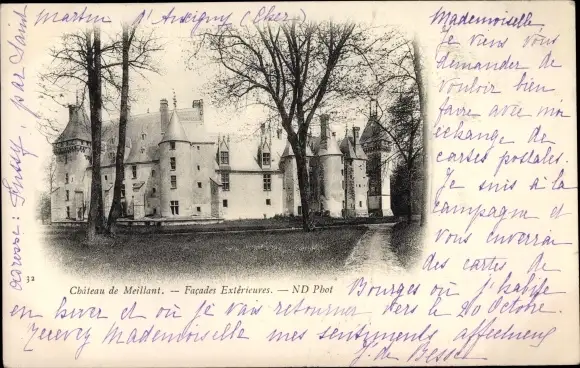 adresse : Fussy, par Saint
martin d'Auxigny (Cher)
Mademoiselle
Je viens vous
demander de
vouloir bien
faire avec moi
échange de
cartes postales.
Je suis à la
campagne et
vous enverrai
des cartes de
Bourges où j'habite
en hiver et où je vais retourner vers le 20 Octobre.
recevez Mademoiselle mes sentiments affectueux
J. de Besse
32
Château de Meillant. — Façades Extérieures. — ND Phot